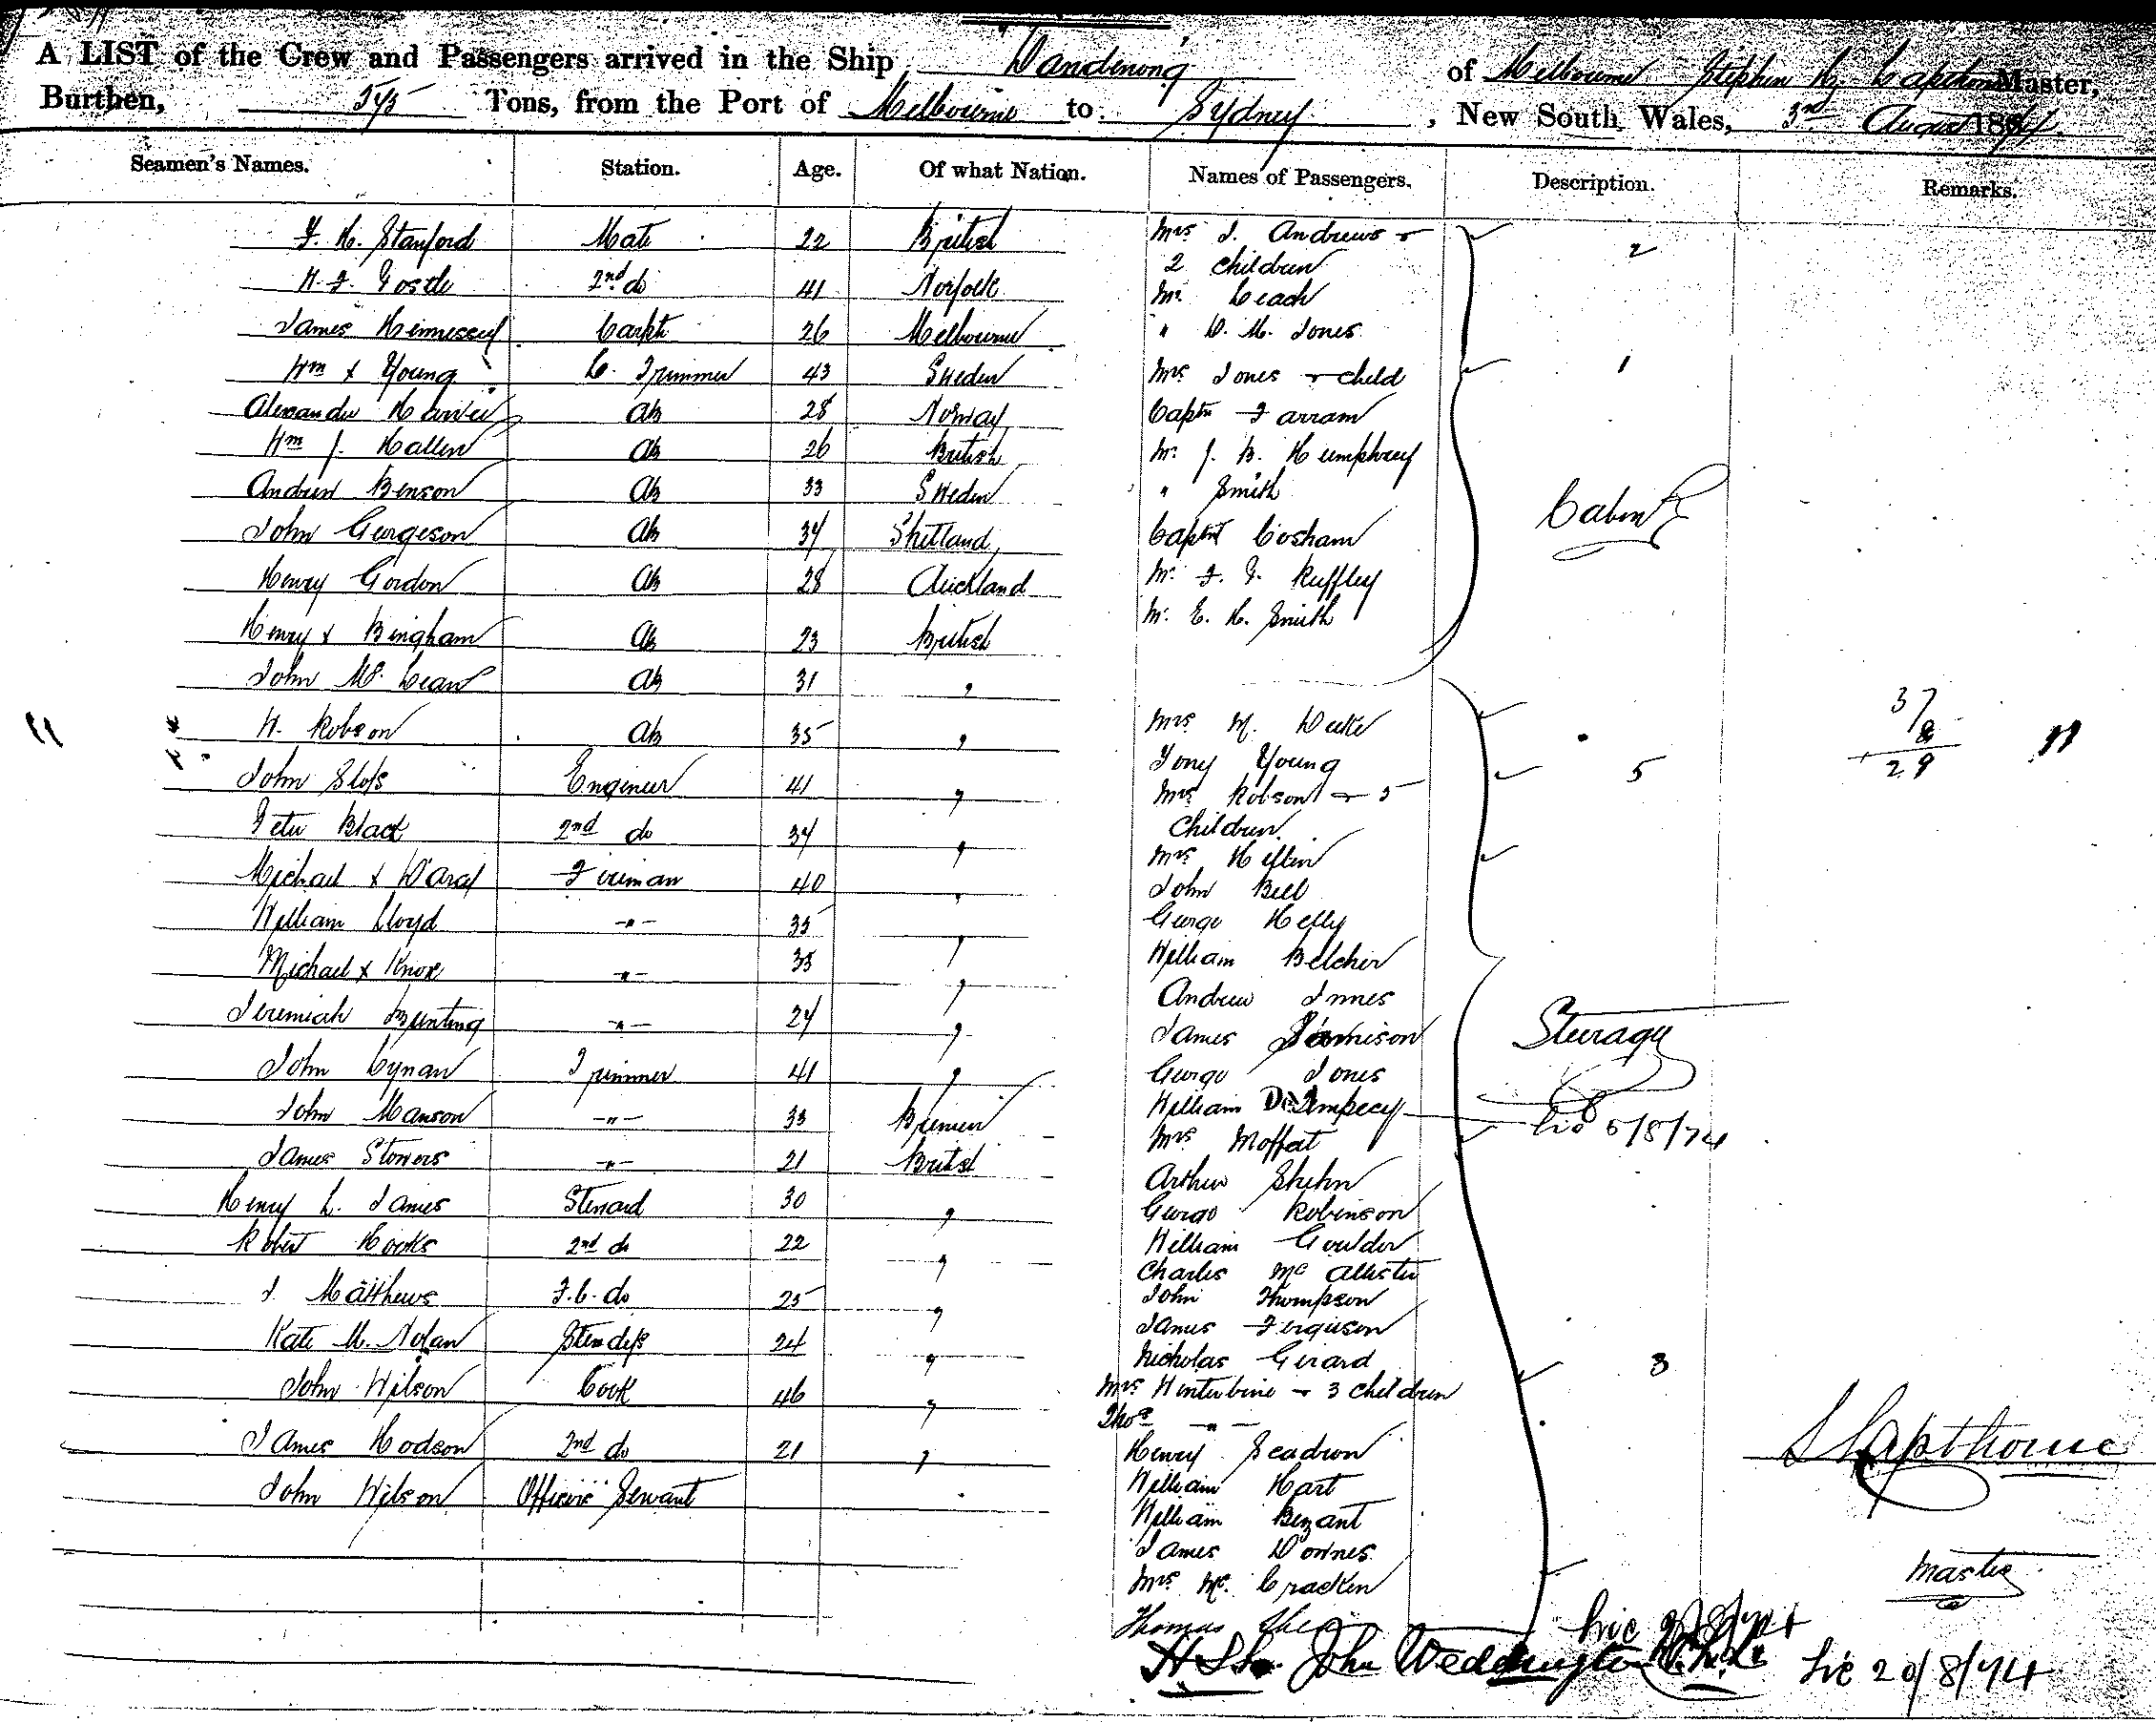 A LIST of the Crew and Passengers arrived in the Ship Dandenong of Melbourne Stephen Hy Lapthorne Master,
Burthen, Tons, from the Port of Melbourne to Sydney, New South Wales, 3rd August 1874
Seamen's Names. Station. Age. Of what Nation. Names of Passengers. Description. Remarks.
F. H. Stanford Mate 22 British
2nd do 41 Norfolk
James Hennessey Carptr 26 Melbourne
Wm x Young L. Trimmer 43 Sweden
Alexander AB 28 Norway
Wm J. Hallen AB 26 British
Andrew Benson AB 33 Sweden
John Georgeson AB 34 Shetland
Henry Gordon AB 28 Auckland
Henry x Bingham AB 23 British
John Mc Lean AB 31 "
W. Robson AB 35 "
John Sloss Engineer 41 "
Peter Black 2nd do 34 "
Michael x Ward Fireman 40 "
William Lloyd -"- 35 "
Michael x Knox -"- 35 "
Jeremiah Bunting -"- 24 "
John Cynan Trimmer 41 "
John Manson -"- 33 Bremen
James Stowers -"- 21 British
Henry L. James Steward 30 "
Robert Hooks 2nd do 22 "
J. Matthews F.C. do 25 "
Kate M. Nolan Stewdess 24 "
John Wilson Cook 46 "
James Hodson 2nd do 21 "
John Wilson Officers Servant
Mrs J. Andrews & 2
2 Children
Mr Leach
" D. M. Jones
Mrs Jones & child 1
Captn Farram
Mr J. B. Humphrey
" Smith
Cabin
Captn Cosham
Mr F. G. Ruffley
Mr E. H. Smith
Mrs M. Duke
Tony Young
Mrs Robson & 5 5
Children
Mrs Heflin
John Bell
George Kelly
William Belcher
Andrew Innes
James Jamison
Steerage
George Jones
William Dempsey
Mrs Moffat
Arthur Shehn
George Robinson
William Goulder
Charles Mc Allister
John Thompson
James Ferguson
Nicholas Girard
Mrs Winterbine & 3 children 3
Thos -"-
Henry Scadron
William Hart
William Bezant
James Downes
Mrs Mc Cracken
Thomas
John Weddington
37
8
29
S Lapthorne
Master
6/8/74
20/8/74